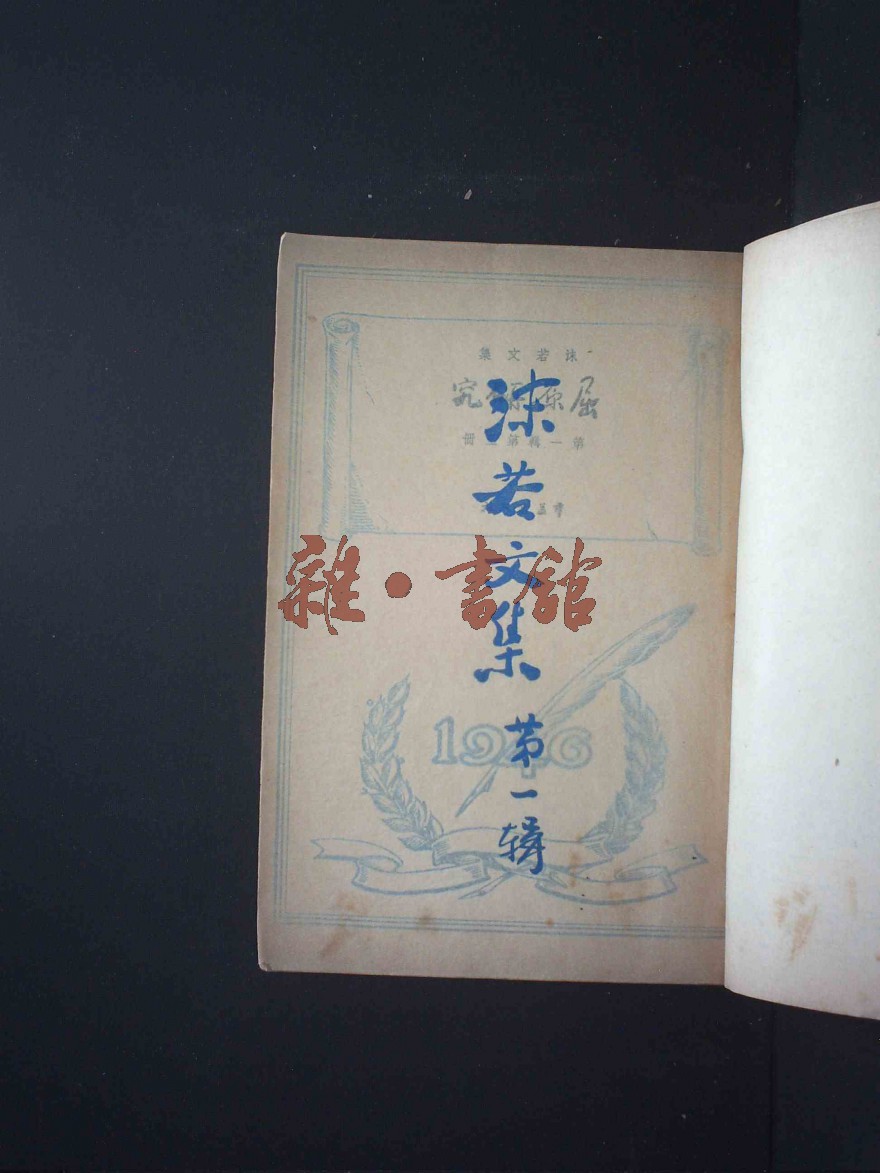 沫若文集
屈原研究
第一輯第
冊
沫若文集
第一辑
雜·書館
1946